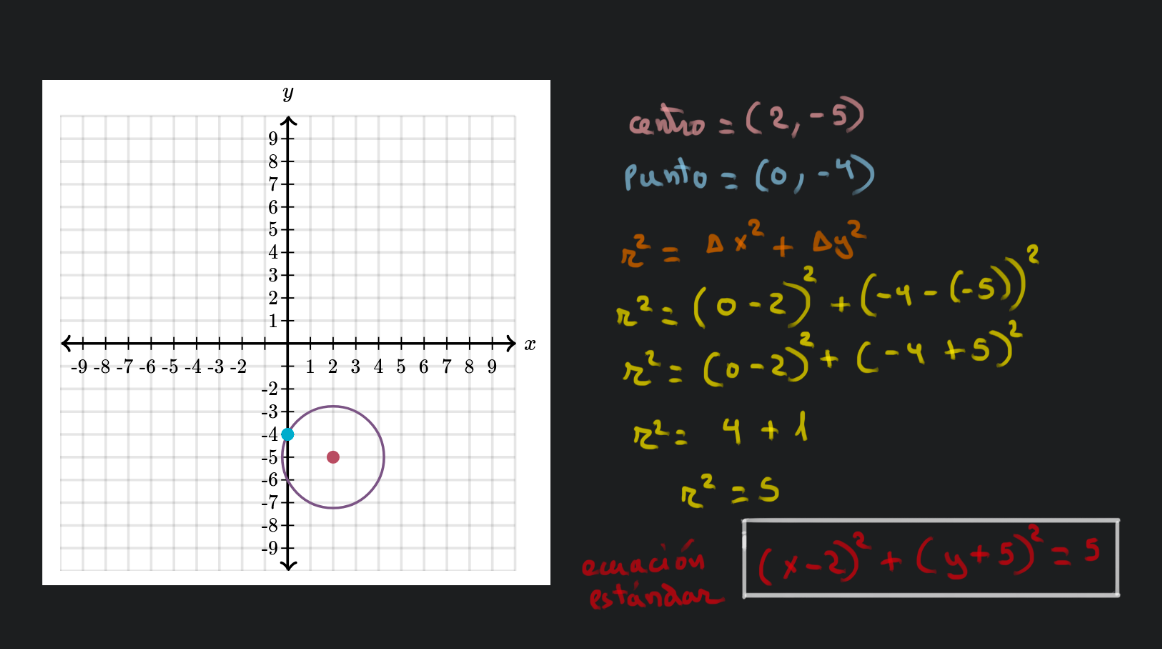 y
9
8
7
6
5
4
3
2
1
x
-9 -8 -7 -6 -5 -4 -3 -2 1 2 3 4 5 6 7 8 9
-2
-3
-4
-5
-6
-7
-8
-9
centro = (2, -5)
Punto = (0, -4)
r² = Δx² + Δy²
r² = (0 - 2)² + (-4 - (-5))²
r² = (0 - 2)² + (-4 + 5)²
r² = 4 + 1
r² = 5
ecuación
estándar
(x - 2)² + (y + 5)² = 5